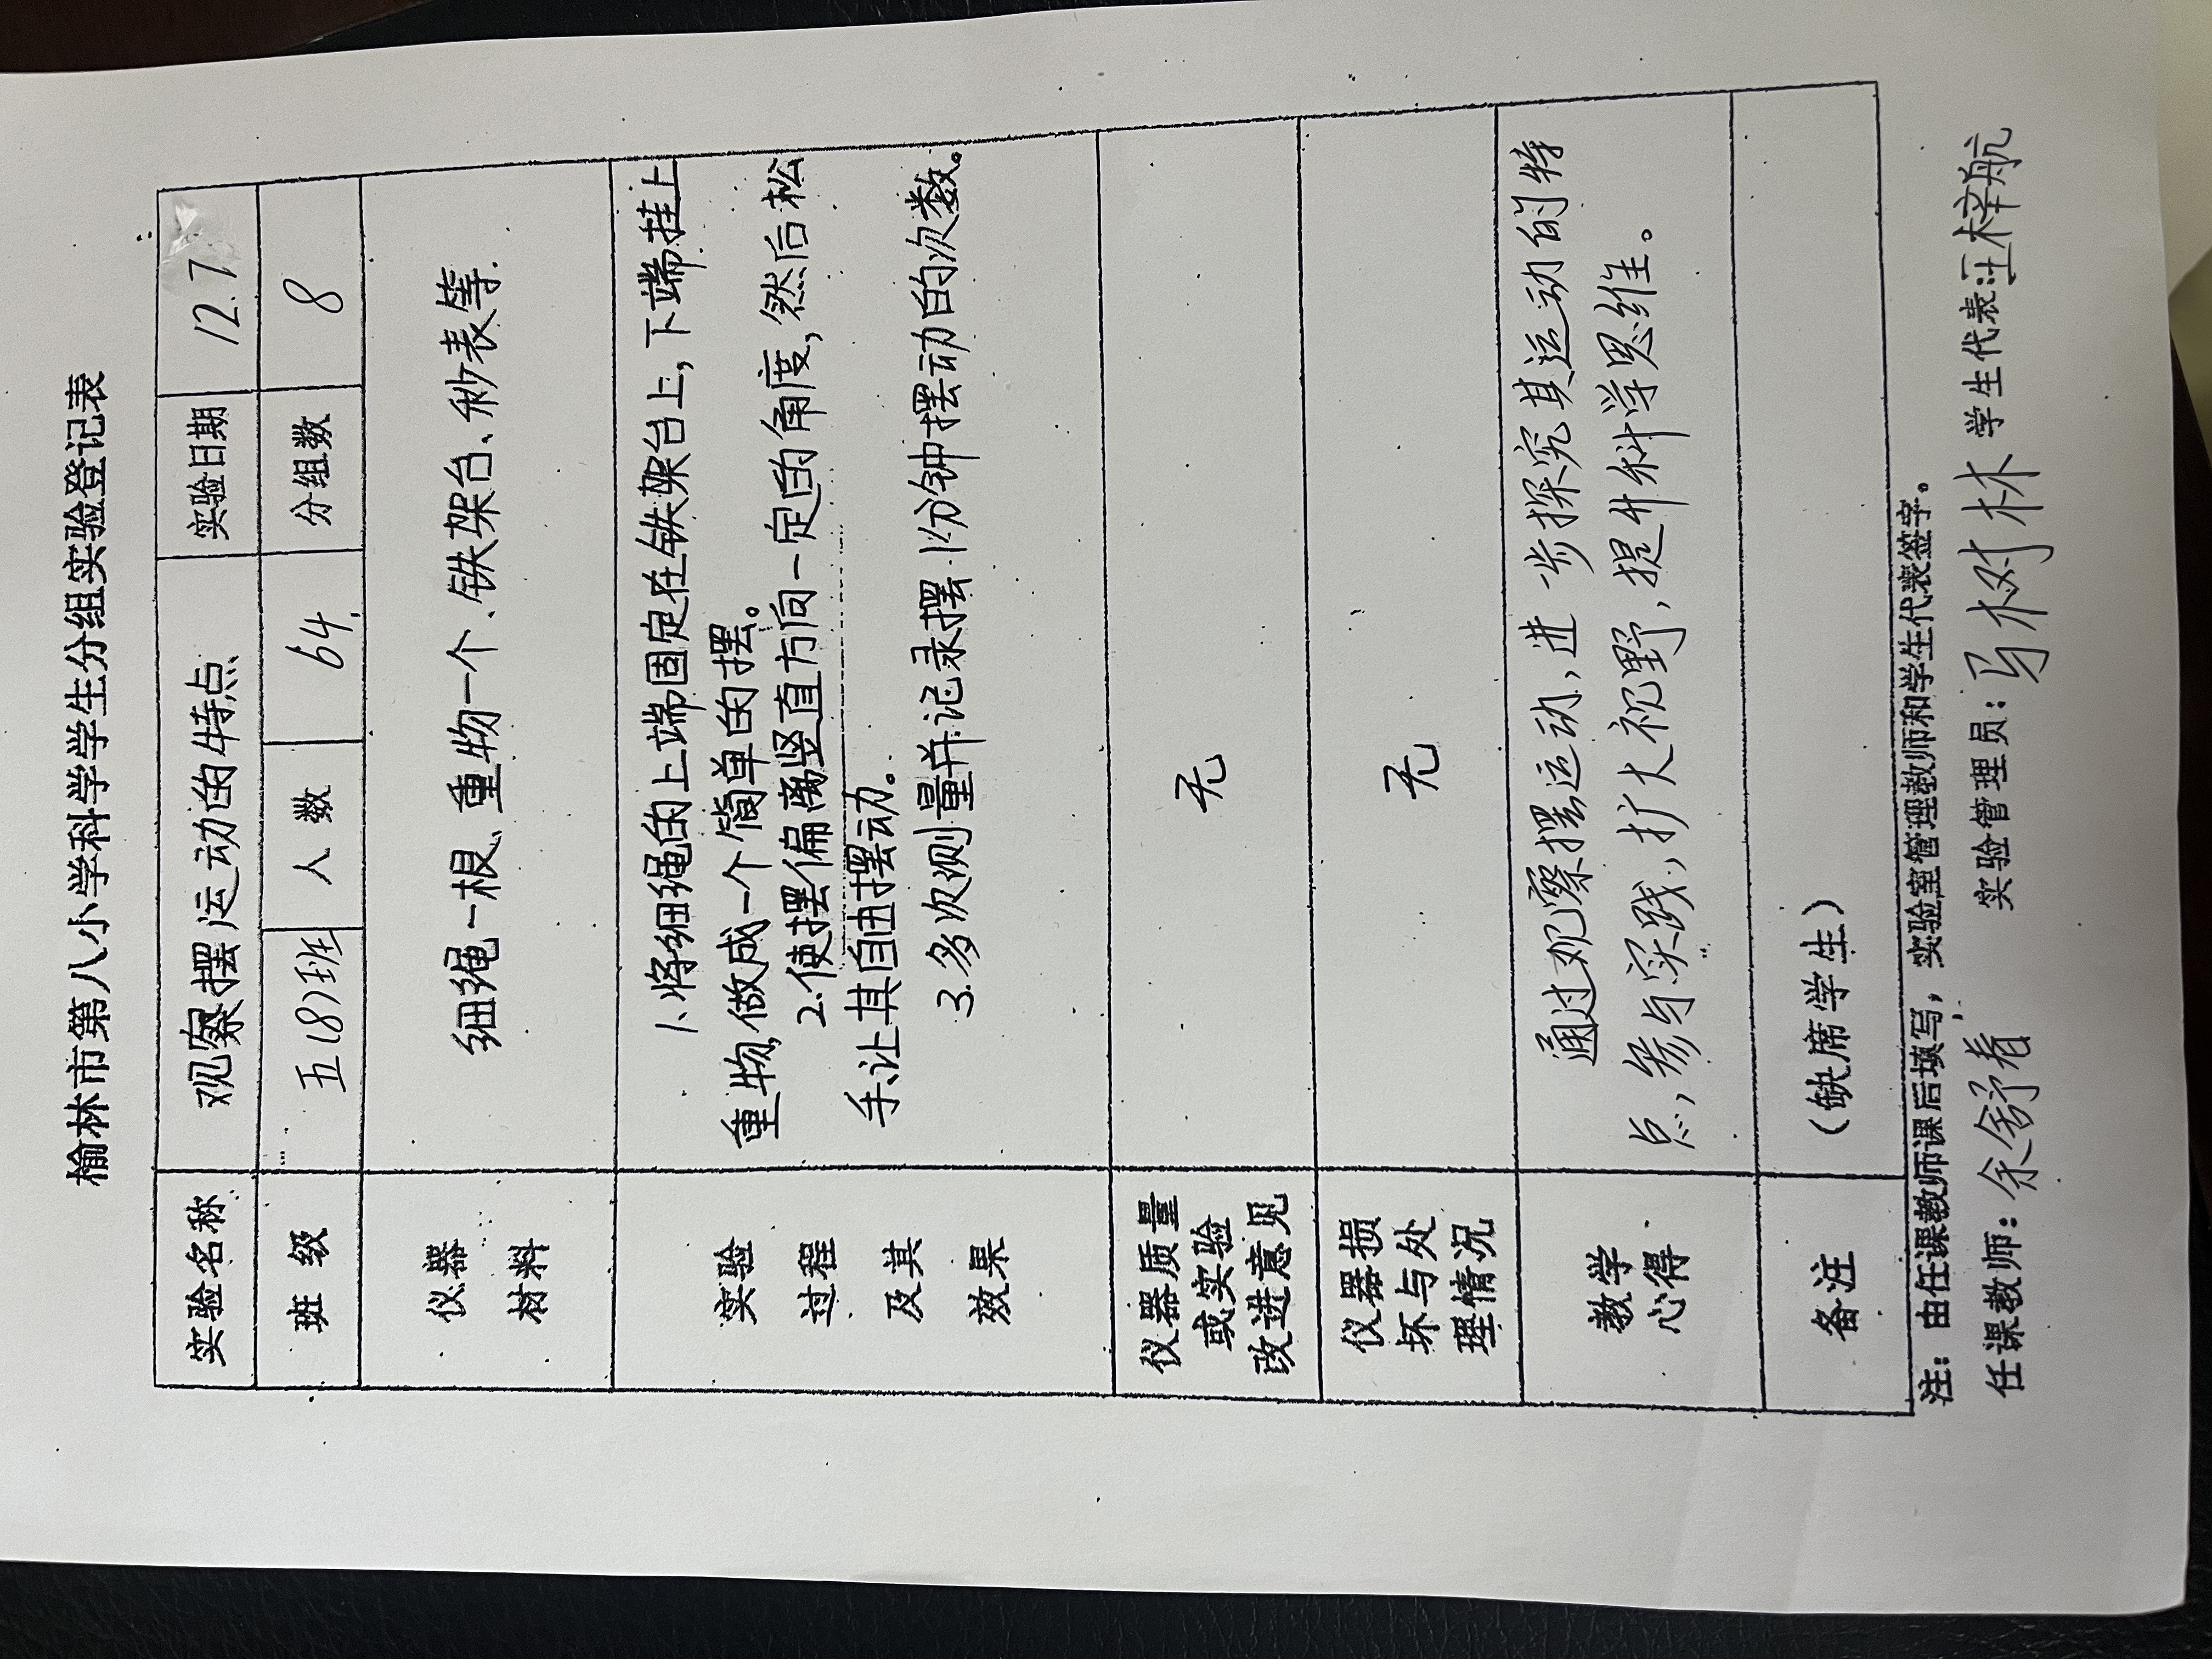 榆林市第八小学科学学生分组实验登记表
实验名称 观察摆运动的特点 实验日期 12.7
班级 五(8)班 人数 64 分组数 8
仪器
材料
细绳一根、重物一个、铁架台、秒表等.
实验
过程
及其
效果
1.将细绳的上端固定在铁架台上,下端挂上
重物,做成一个简单的摆。
2.使摆偏离竖直方向一定的角度,然后松
手,让其自由摆动。
3.多次测量并记录摆1分钟摆动的次数。
仪器质量
或实验
改进意见
无
仪器损
坏与处
理情况
无
教学
心得
通过观察摆运动,进一步探究其运动的特
点,参与实践,扩大视野,提升科学思维。
备注 (缺席学生)
注：由任课教师课后填写，实验室管理教师和学生代表签字。
任课教师：余舒着 实验管理员：马树林 学生代表：汪梓航